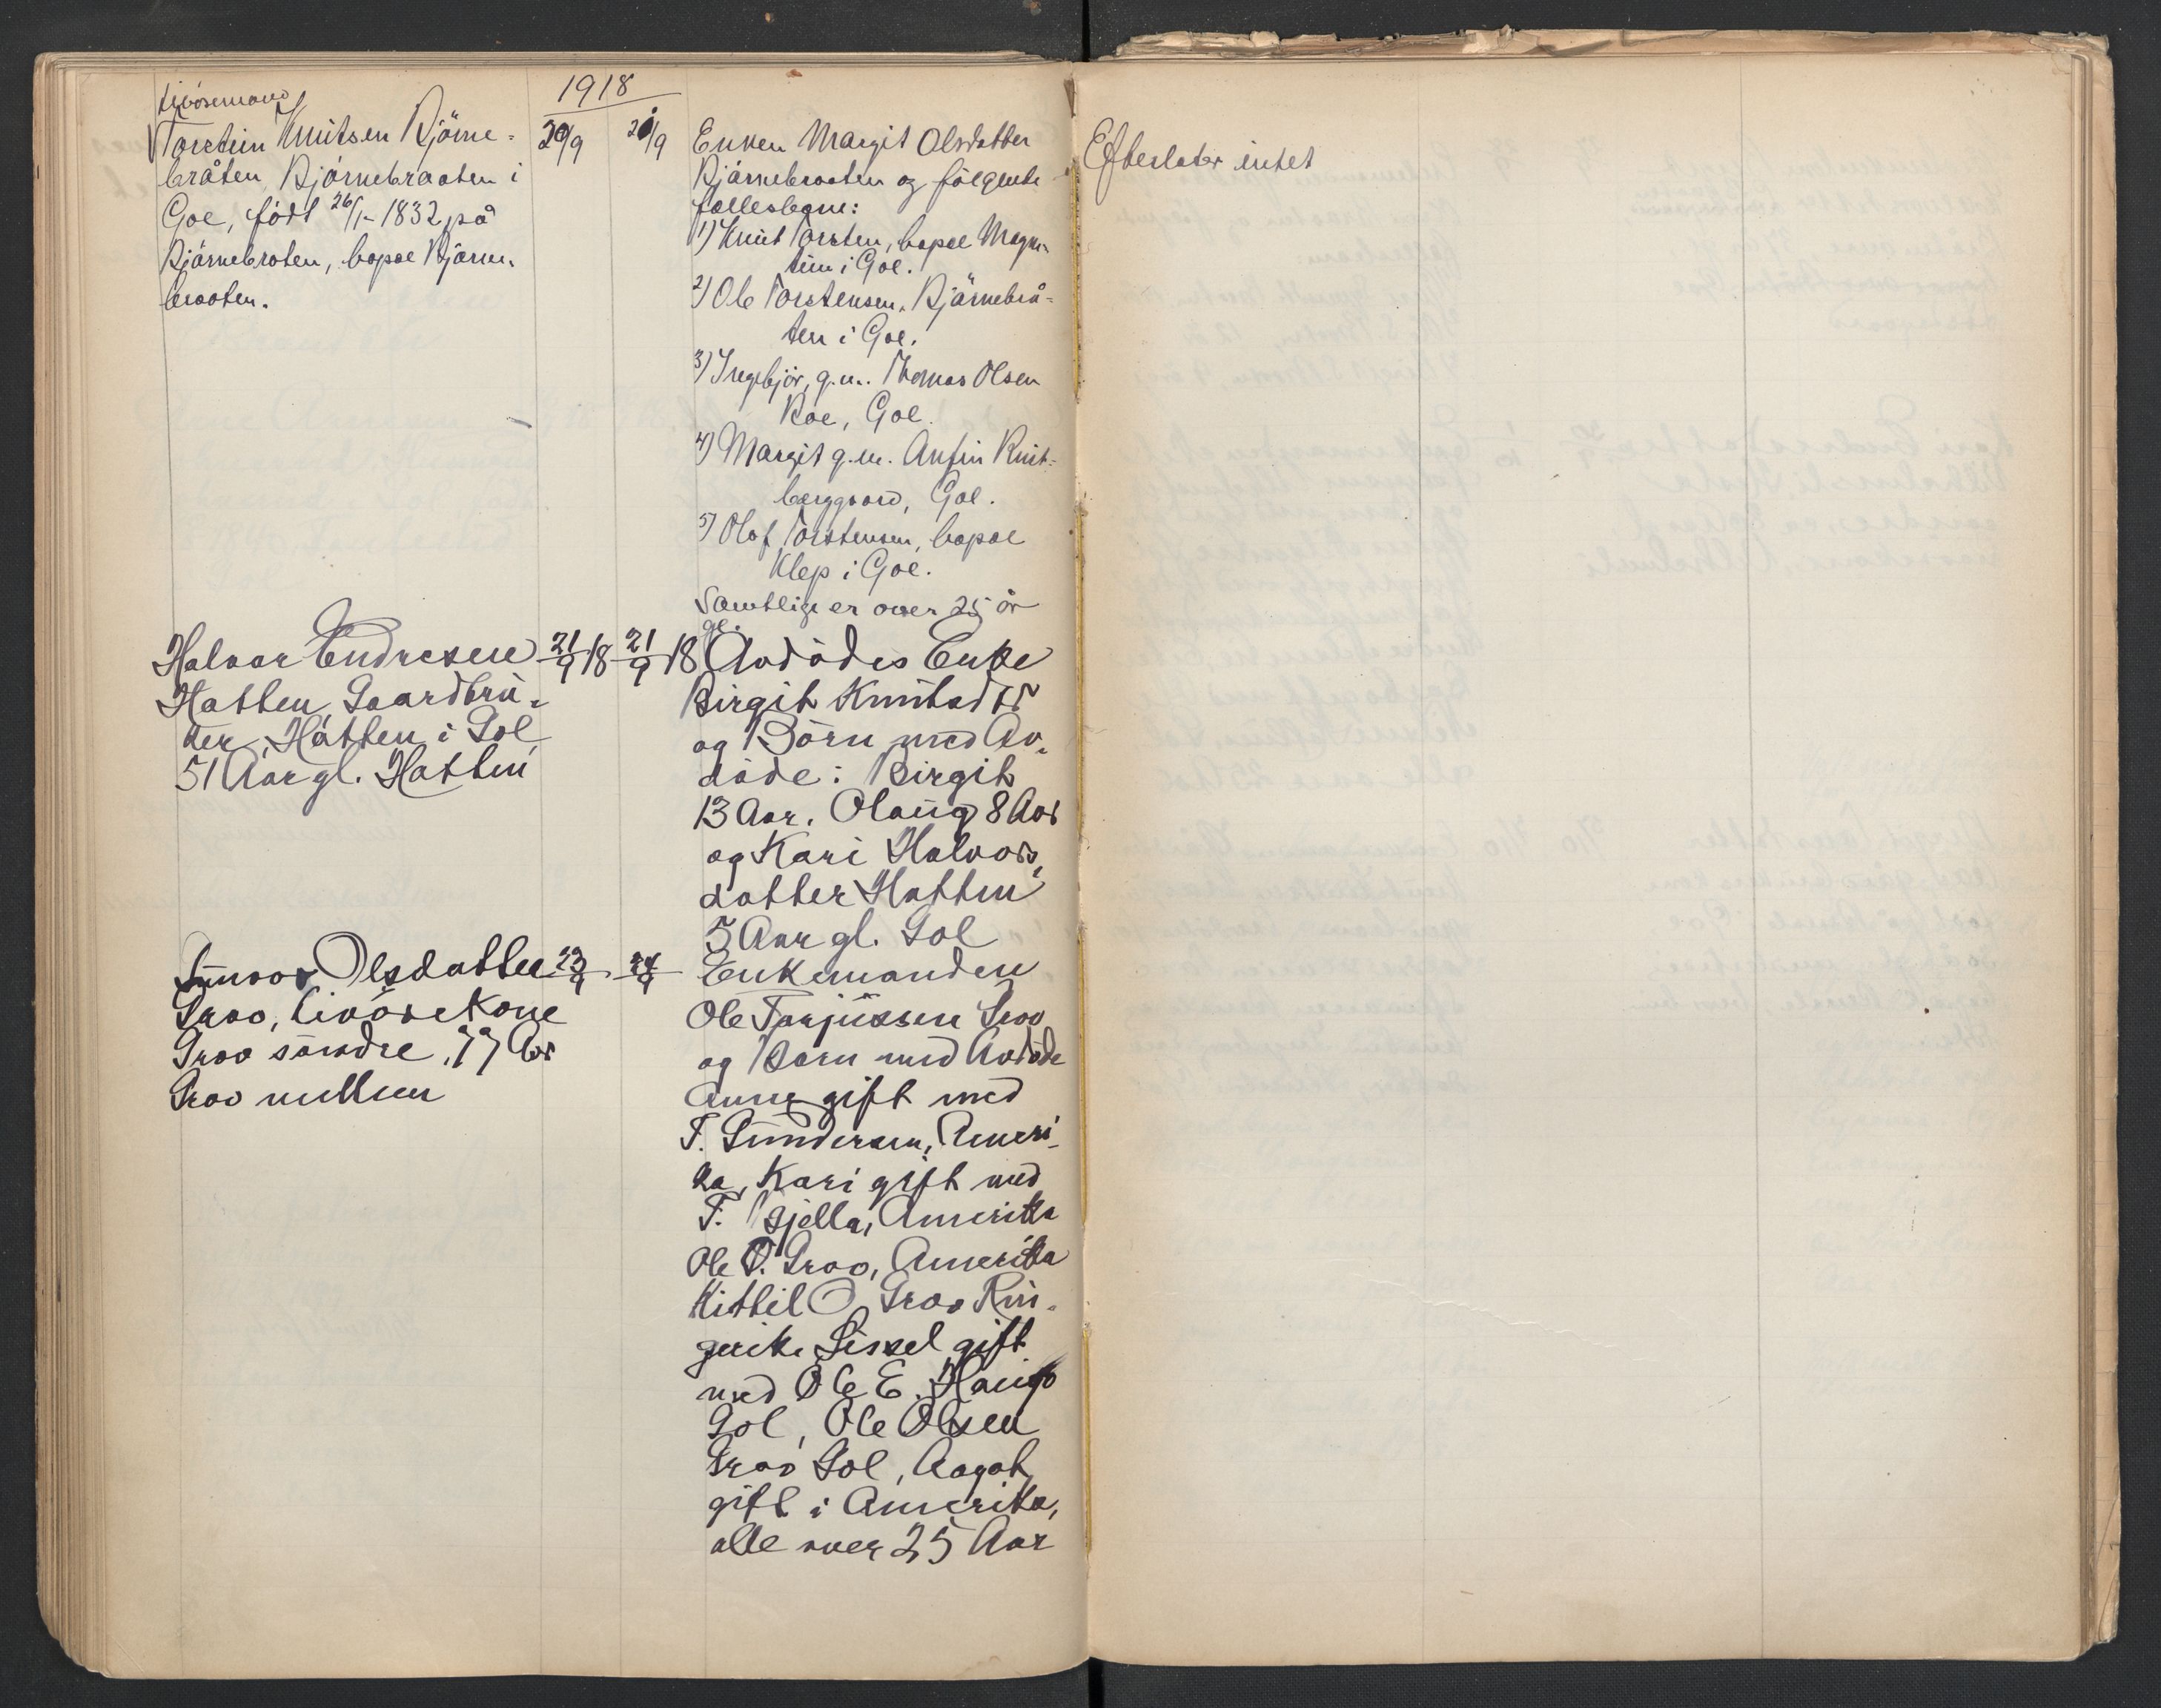 1918
Livösmand
Torstein Knutsen Björne-
bråten, Björnebraaten i
Gol, född 26/1-1832 på
Björnebraten, bopæl Björne-
braaten.
20/9 21/9
Enken Margit Olsdatter
Björnebraaten og følgende
fællesbarn:
1) Knut Torsten, bopæl Magn-
i Gol.
2) Ole Torstensen, Björnebrå-
ten i Gol.
3) Ingebjör, g.m. Thomas Olsen
Roe, Gol.
4) Margit g.m. Anfin Knut-
berggaard, Gol.
5) Olaf Torstensen, bopæl
Klep i Gol.
Samtlige er over 25 år
gl.
Efterlater intet
Halvor Endresen
Hatten Gaardbru-
ker, Hatten i Gol
51 Aar gl. Hatten
21/9 18 21/9 18
Avdödes Enke
Birgit Knutsdtr
og Börn med Av-
døde: Birgit
13 Aar, Olaug 8 Aar
og Kari Halvors-
datter Hatten
5 Aar gl. Gol
Olsdatter
Groo, Livörekone
Groo söndre, 77 Aar
Groo mellem
23/9 24/9
Enkemanden
Ole Tarjussen Groo
og Barn med Avdöde
Anne gift med
T. Gundersen, Ameri-
ka, Kari gift med
T. Gjella, Amerika
Ole O. Groo, Amerika
Kittil O. Groo Rin-
gerike Sissel gift
med Ole E. Hauge
Gol, Ole Olsen
Groo Gol, Aagot
gift i Amerika,
alle over 25 Aar